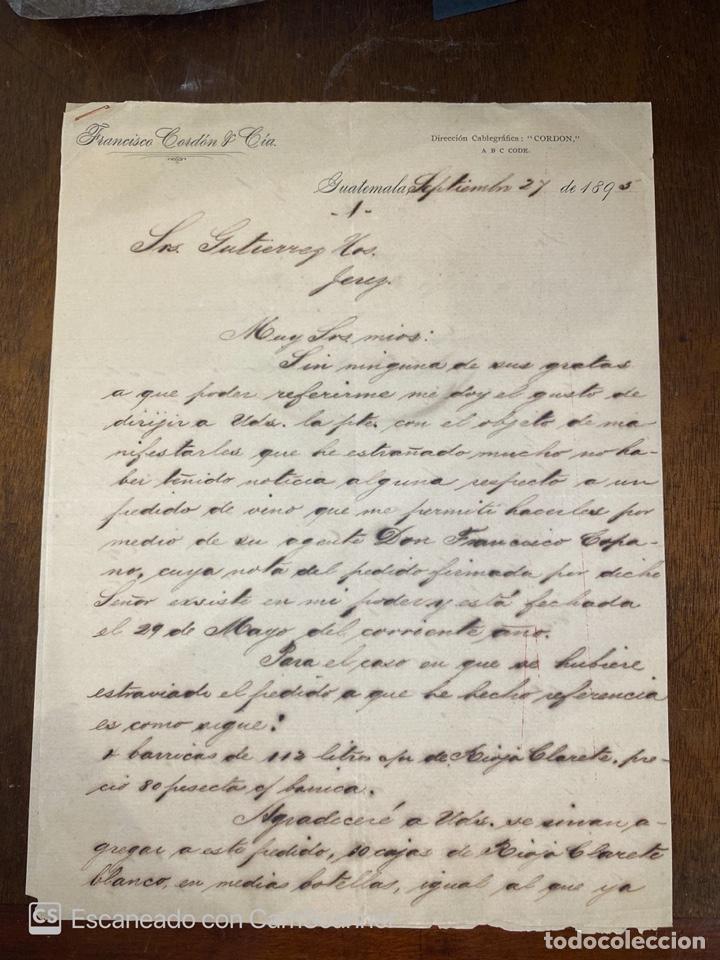 Francisco Cordón & Cía.
Dirección Cablegráfica: "CORDON,"
A B C CODE.
Guatemala, Septiembre 27 de 1895
-1-
Srs. Gutierrez Hos.
Jerez.
Muy Srs mios:
Sin ninguna de sus gratas
a que poder referirme me doy el gusto de
dirijir a Uds. la pte. con el objeto de ma-
nifestarles que he estrañado mucho no ha-
ber tenido noticia alguna respecto a un
pedido de vino que me permití hacerles por
medio de su agente Don Francisco Copa-
no, cuya nota del pedido firmada por dicho
Señor existe en mi poder y está fechada
el 29 de Mayo del corriente año.
Para el caso en que se hubiere
estraviado el pedido a que he hecho referencia
es como sigue:
barricas de 112 litros c/u de Rioja Clarete, pre-
cio 80 pesetas c/ barrica.
Agradeceré a Uds. se sirvan a-
gregar a este pedido, 50 cajas de Rioja Clarete
blanco, en medias botellas, igual al que ya
CS Escaneado con CamScanner
todocoleccion